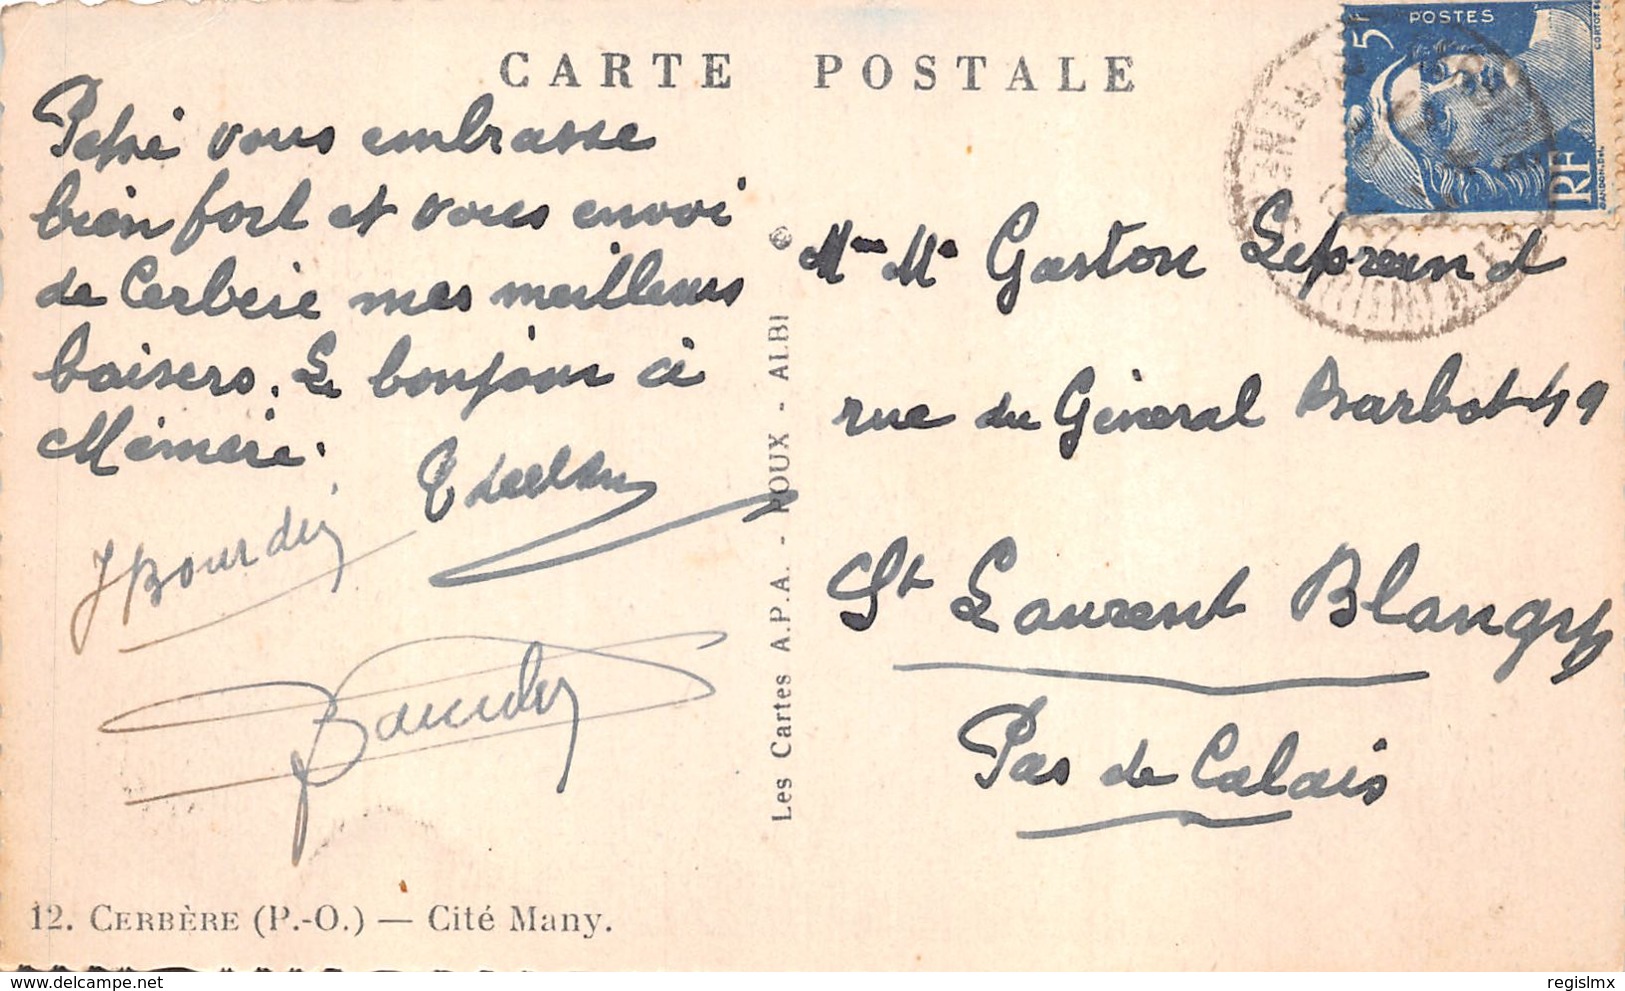 CARTE POSTALE
Pépé vous embrasse
bien fort et vous envoi
de Cerbère mes meilleurs
baisers. Le bonjour à
Mémère.
JBourdin
12. CERBÈRE (P.-O.) — Cité Many.
Les Cartes A.P.A. - POUX - ALBI
POSTES
5F
RF
GANDON.DEL.
Mme Mr Gaston
rue du Général Barbot 49
St Laurent Blangy
Pas de Calais
regislmx